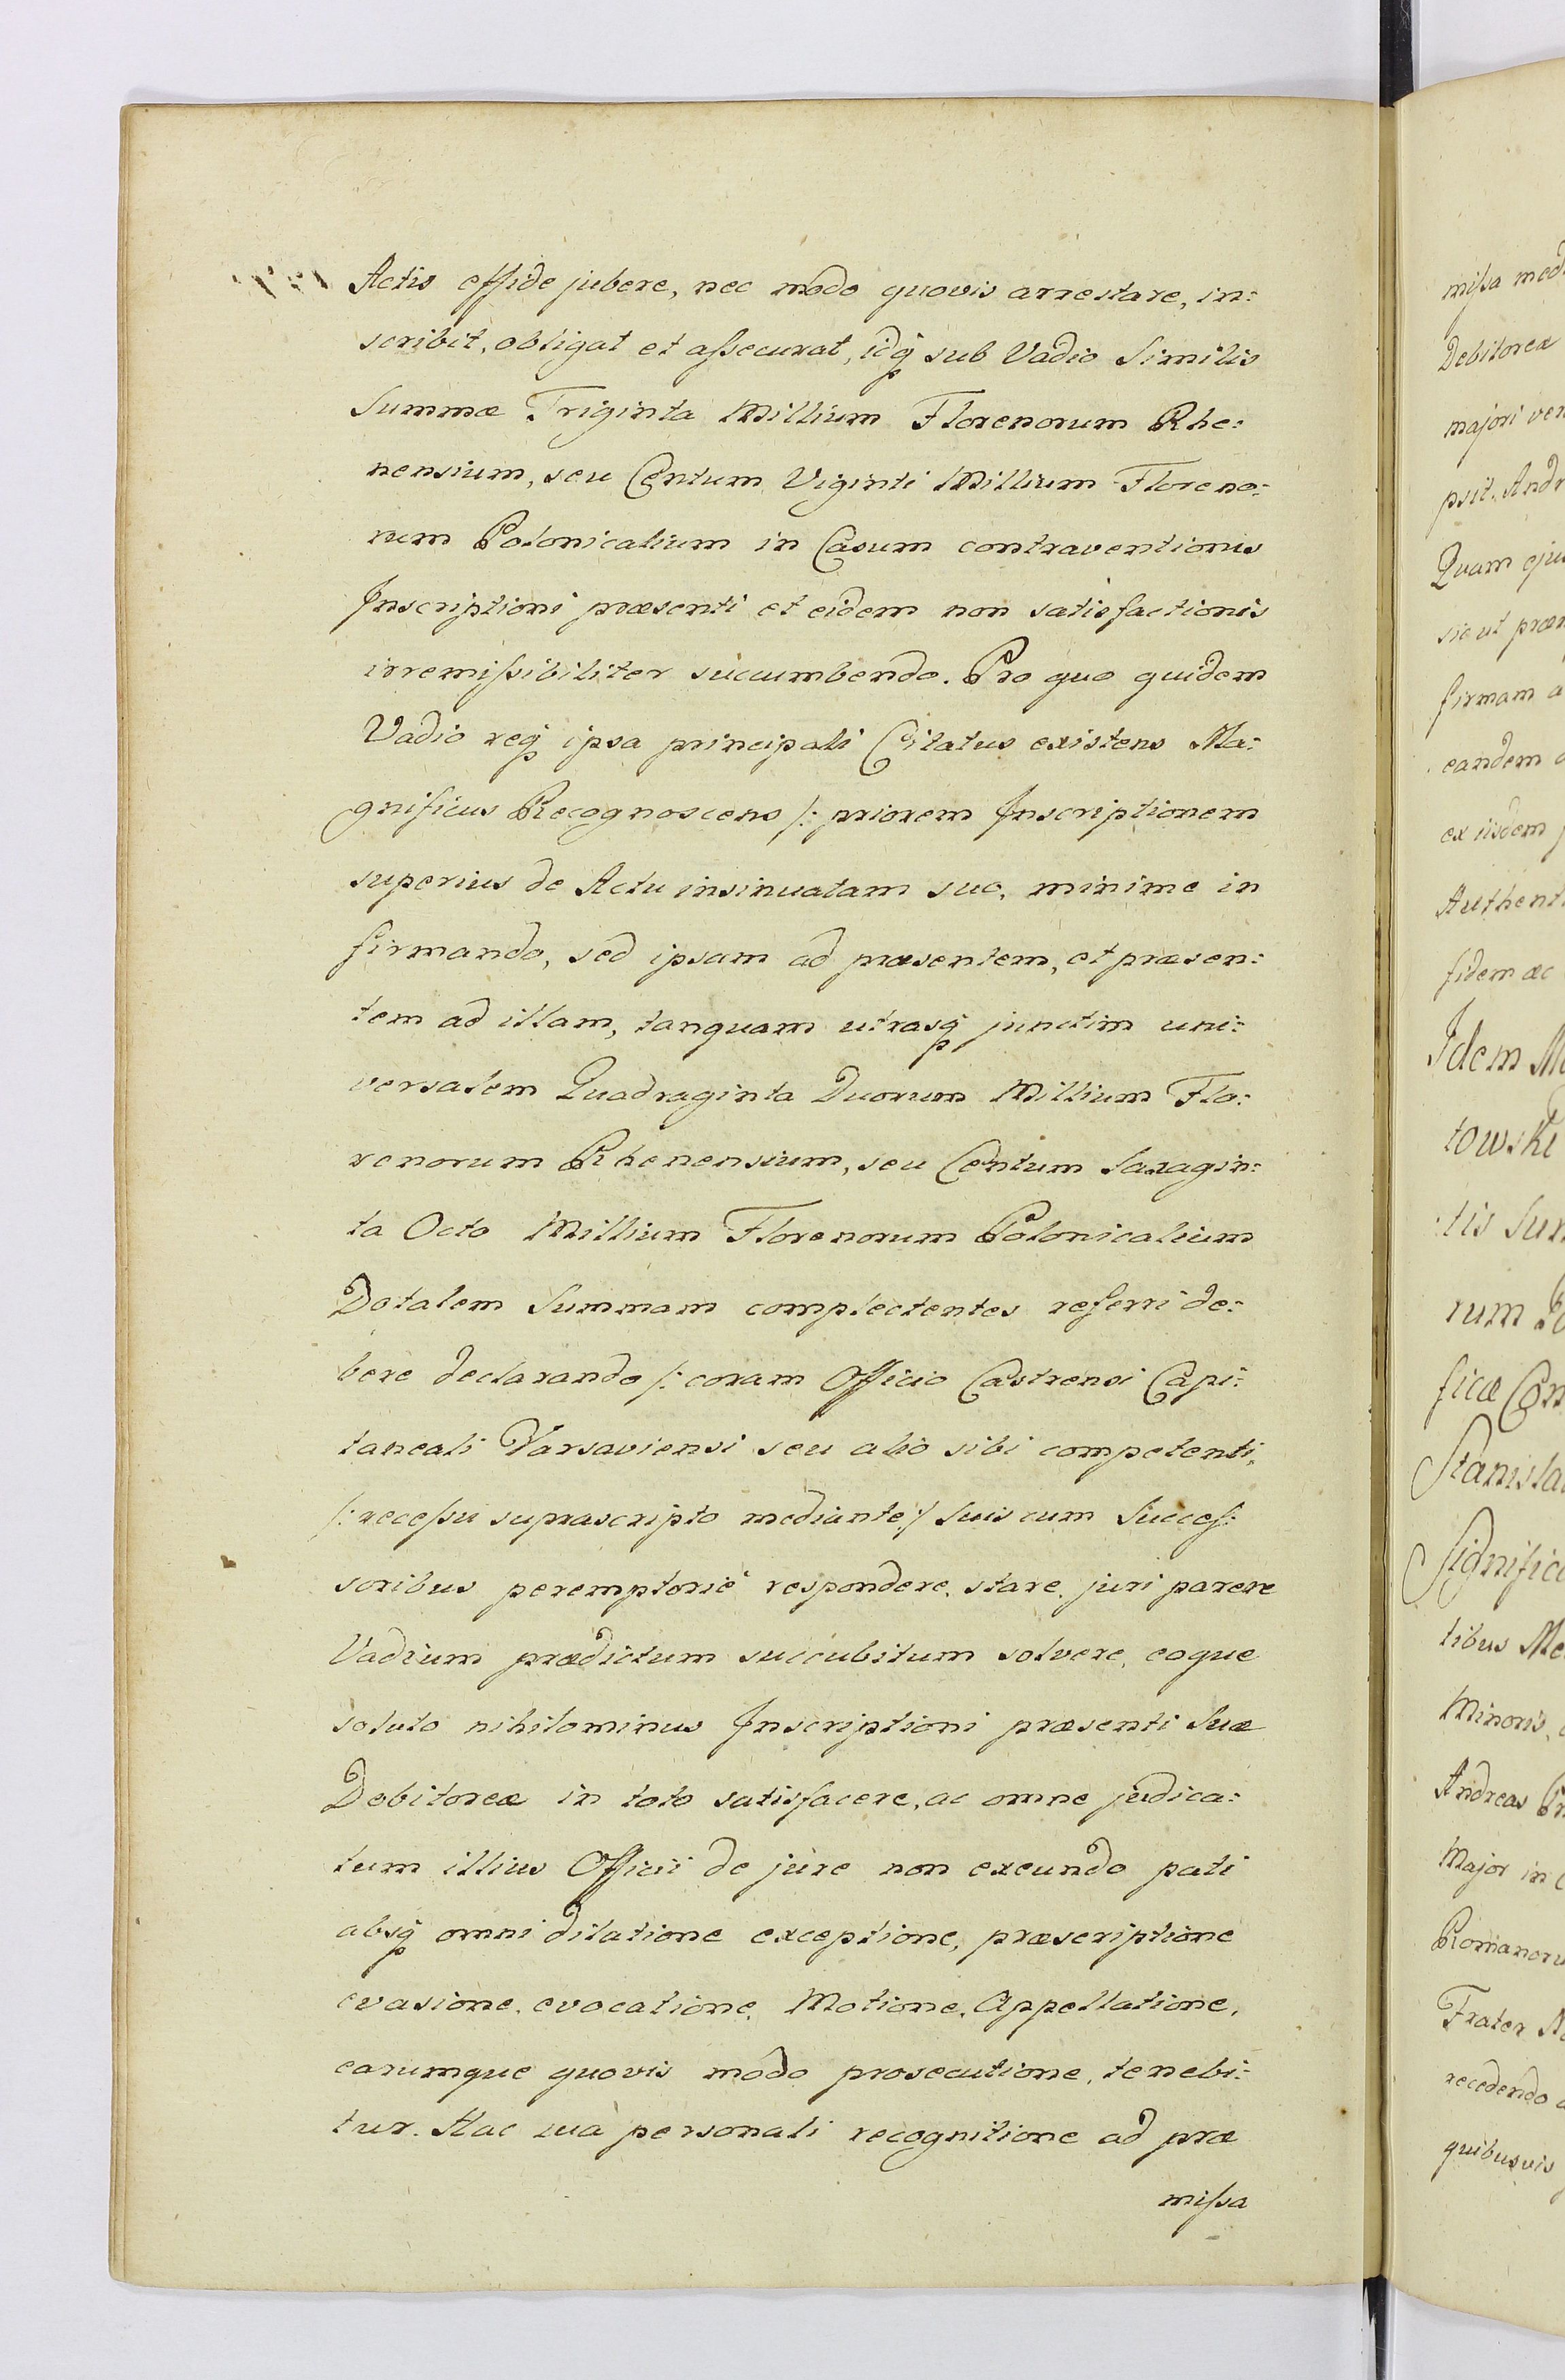 Actis effide jubere, nec modo quovis arrestare, in:
scribit, obligat et aſsecurat, idq sub Vadio Similis
Summæ Triginta Millium Florenorum Rhe:
nensium, seu Centum Viginti Millium Floreno:
rum Polonicalium in Casum contraventionis
Inscriptioni præsenti et eidem non satisfactionis
irremiſsibiliter succumbendo. Pro quo quidem
Vadio reqꝫ ipsa principali Citatus existens Ma:
gnificus Recognoscens /: priorem Inscriptionem
superius de Actu insinuatam suo, minime in
firmando, sed ipsam ad præsentem, et præsen:
tem ad illam, tanquam utrasq junctim uni:
versalem Quadraginta Duorum Millium Flo:
renorum Rhenensium, seu Centum Saxagin:
ta Octo Millium Florenorum Polonicalium
Dotalem Summam complectentes referri de:
bere declarando /: coram Officio Castrensi Capi:
taneali Varsaviensi seu alio sibi competenti,
/: receſsu suprascripto mediante :/ Suis cum Succeſ:
soribus peremptorie respondere, stare, juri parere
Vadium prædictum succubitum solvere, eoque
soluto nihilominus Inscriptioni præsenti Suæ
Debitoreæ in toto satisfacere, ac omne judica:
tum illius Officii de jure non exeundo pati
absq omni dilatione exceptione, præscriptione
evasione, evocatione, Motione, Appellatione,
earumque quovis modo prosecutione, tenebi:
tur. Hac sua personali recognitione ad præ
miſsa
miſsa med
Debitoreæ
majori ver
psit. Andr
Quam eju
sic ut præ
firmam a
eandem
ex iisdem
Authent
fidem ac
Idem M
towski
tis Su
rum Po
ficæ Con
Stanisla
Significa
tibus Me
Minoris,
Andreas
Major in
Romanoru
Frater
recedendo
quibusvis